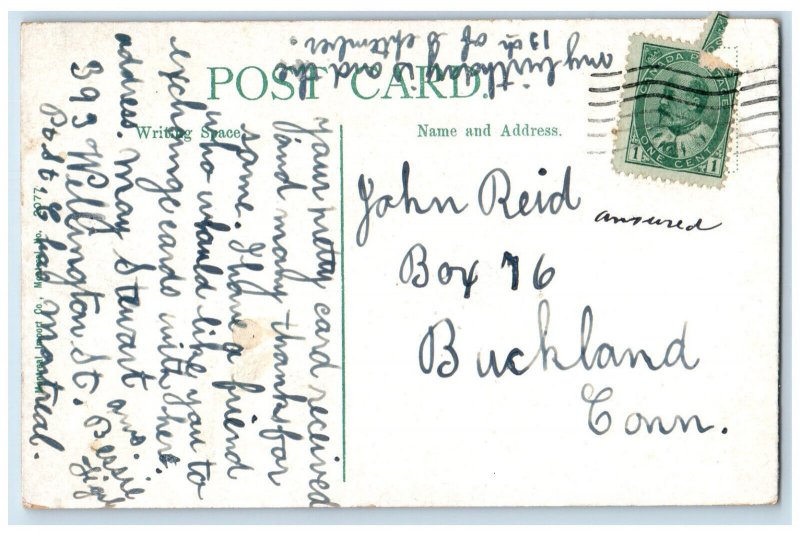 POST CARD.
Writing Space.
Name and Address.
CANADA POSTAGE
1 ONE CENT 1
John Reid
answered
Box 76
Buckland
Conn.
your pretty card received
and many thanks for
same. I have a friend
who would like you to
exchange cards with her.
address. May Stewart
393 Wellington St.
Pt. St. Chas Montreal.
ans. Bessie
my birthday is and the
13th of September.